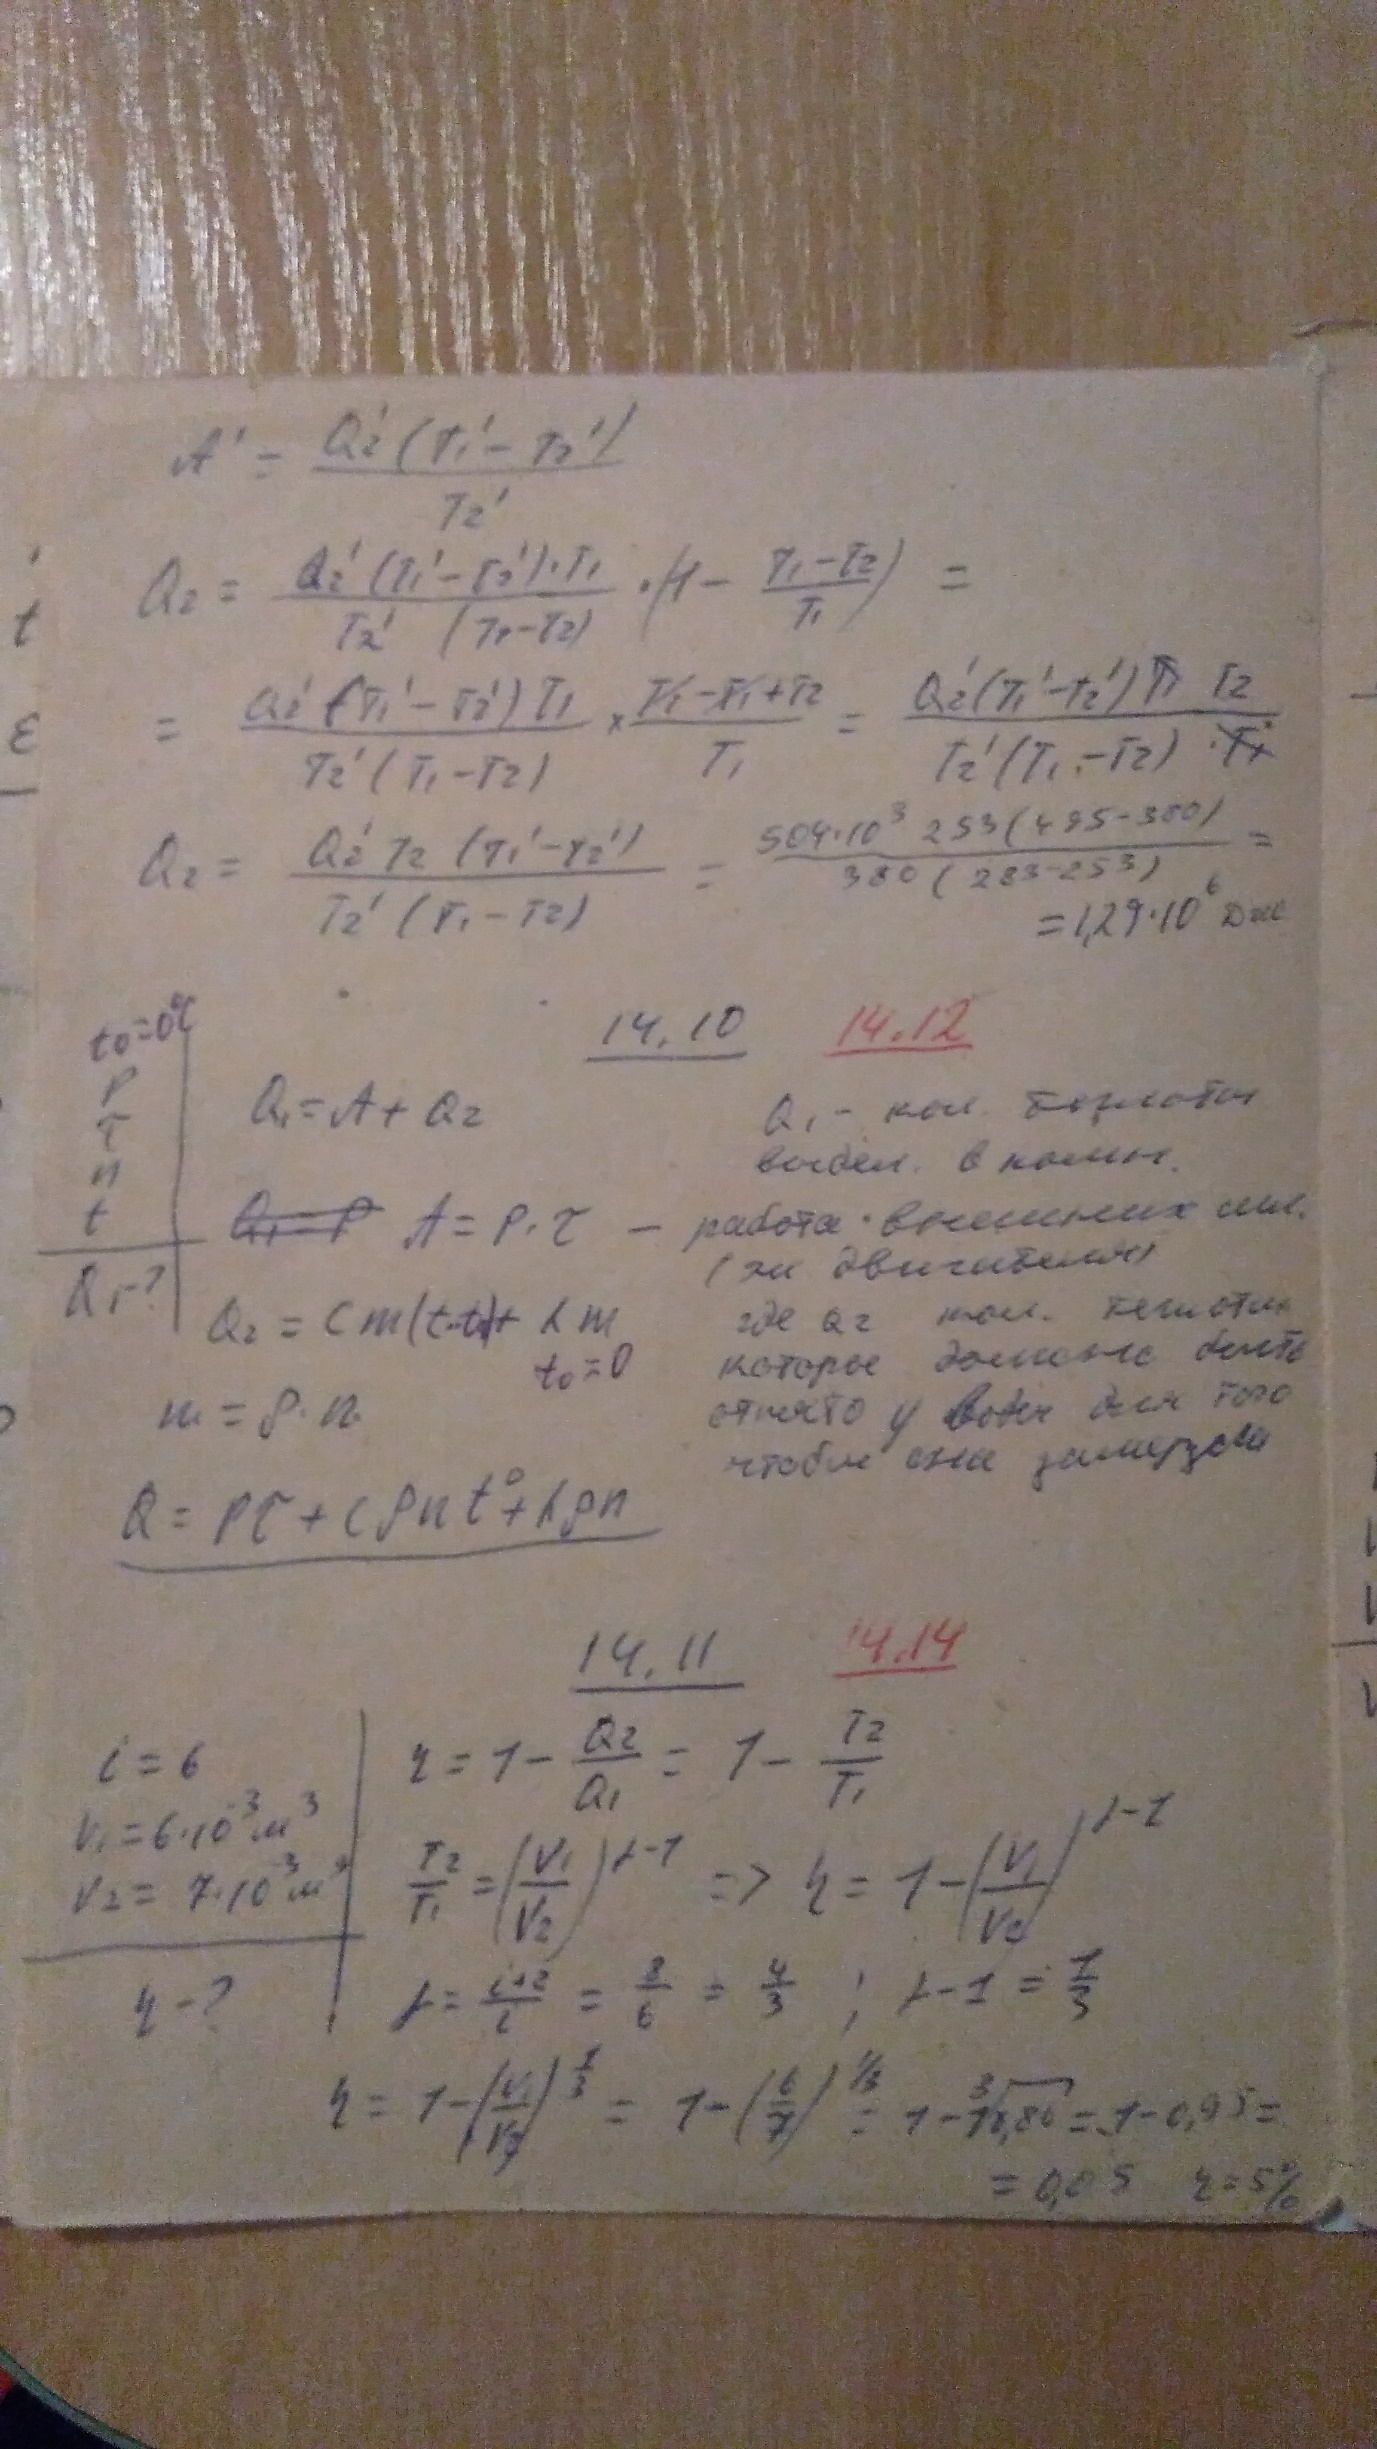 A' = Q2'(T1' - T2') / T2'
Q2 = Q2'(T1' - T2')·T1 / T2' (T1 - T2) · (1 - (T1 - T2) / T1) =
= Q2'(T1' - T2') T1 / T2'(T1 - T2) × (T1 - T1 + T2) / T1 = Q2'(T1' - T2') T1 T2 / T2'(T1 - T2) · T1
Q2 = Q2' T2 (T1' - T2') / T2' (T1 - T2) = 504·10³ 253 (495 - 380) / 380 (283 - 253) =
= 1,29·10⁶ Дж
14.10 14.12
t0 = 0°C
P
τ
n
t
Q1 - ?
Q1 = A + Q2
Q1 - кол. теплоты
выдел. в комн.
Q1 = P A = P·τ - работа внешних сил.
(эл двигателя)
Q2 = cm(t-t0) + λm
t0 = 0
где Q2 кол. теплоты
которое должно быть
отнято у воды для того
чтобы она замерзла
m = ρ·n
Q = Pτ + cρnt° + λρn
14.11 14.14
i = 6
V1 = 6·10⁻³ м³
V2 = 7·10⁻³ м³
η - ?
η = 1 - Q2 / Q1 = 1 - T2 / T1
T2 / T1 = (V1 / V2)^(γ-1) => η = 1 - (V1 / V2)^(γ-1)
γ = (i+2) / i = 8/6 = 4/3 ; γ - 1 = 1/3
η = 1 - (V1 / V2)^(1/3) = 1 - (6/7)^(1/3) = 1 - ∛0,86 = 1 - 0,95 =
= 0,05 η = 5%